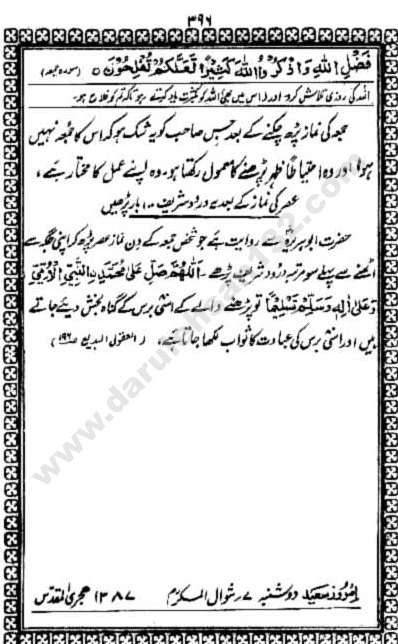 ۳۹۶
فَضْلِ اللّٰهِ وَاذْكُرُوا اللّٰهَ كَثِيْرًا لَّعَلَّكُمْ تُفْلِحُوْنَ ○ (سورہ جمعہ)
اللہ کی روزی تلاش کرو اور (اس میں بھی) اللہ کو بکثرت یاد کرتے رہو تاکہ تم کو فلاح ہو۔
جمعہ کی نماز پڑھ چکنے کے بعد جس صاحب کو یہ شک ہو کہ اس کا جمعہ نہیں
ہوا اور وہ احتیاطاً ظہر پڑھنے کا معمول رکھتا ہو۔ وہ اپنے عمل کا مختار ہے،
عصر کی نماز کے بعد یہ درود شریف ۱۰۰ بار پڑھیں
حضرت ابوہریرہؓ سے روایت ہے جو شخص جمعہ کے دن نماز عصر پڑھ کر اپنی جگہ سے
اٹھنے سے پہلے سو مرتبہ درود شریف پڑھے۔ اَللّٰهُمَّ صَلِّ عَلٰى مُحَمَّدِ نِ النَّبِيِّ الْاُمِّيِّ
وَعَلٰى اٰلِهٖ وَسَلِّمْ تَسْلِيْمًا تو پڑھنے والے کے اسّی برس کے گناہ بخش دیئے جاتے
ہیں اور اسّی برس کی عبادت کا ثواب لکھا جاتا ہے، (القول البدیع ص۱۹۶)
امروز سعید دوشنبہ ۷ شوال المکرم ۱۳۸۷ ہجری المقدس